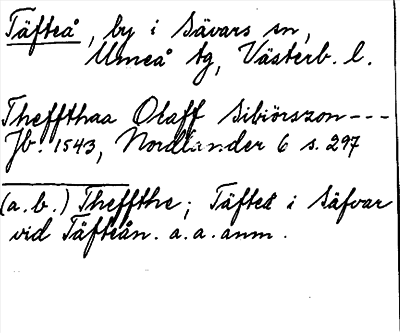 Täfteå, by i Sävars sn,
Umeå tg, Västerb. l.
Theffthaa Olaff Sibiörszon---
Jb. 1543, Nordlander 6 s. 297
(a.b.) Theffthe; Täfteå i Säfvar
vid Täfteån. a.a. anm.